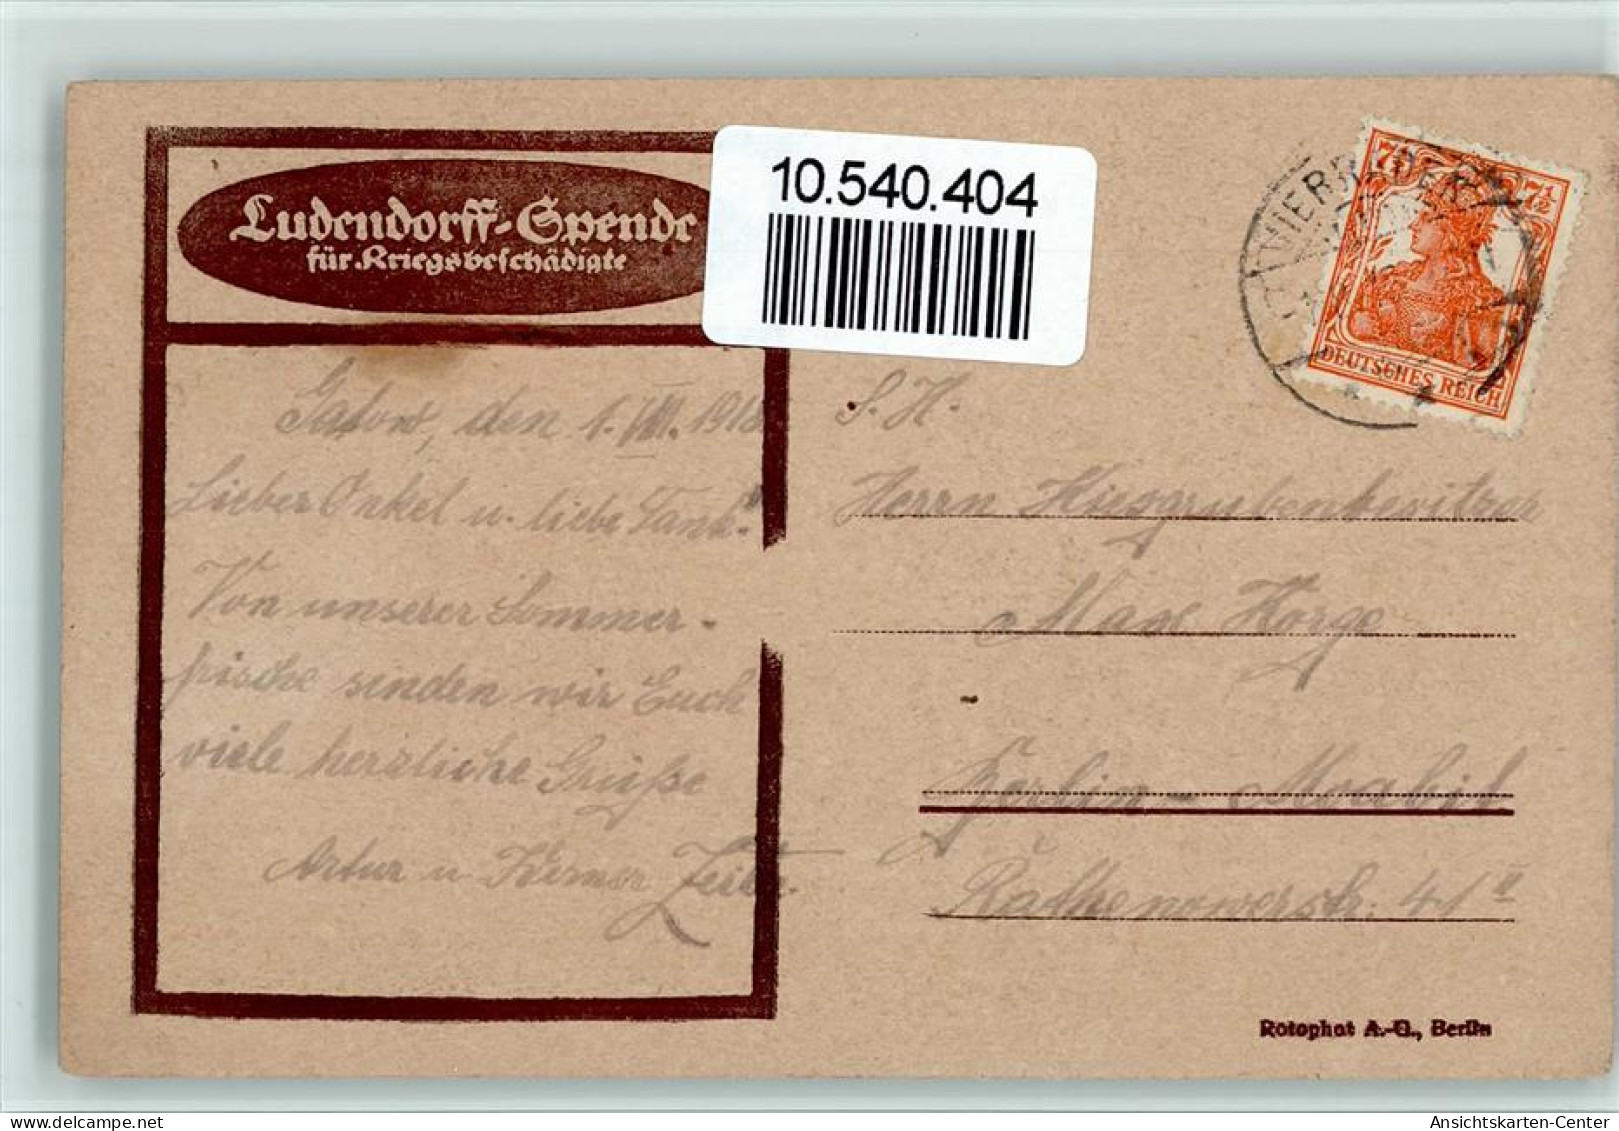 Ludendorff-Spende
für Kriegsbeschädigte
10.540.404
VIERRADEN
7½ 7½
DEUTSCHES REICH
Gatow, den 1. VIII. 1918
Lieber Onkel u. liebe Tante!
Von unserer Sommer-
frische senden wir Euch
viele herzliche Grüße
Artur u.
S. H.
Herrn Kiesgrubenbesitzer
Max Korge
Berlin - Moabit
Rathenowerstr. 41 II
Rotophot A.-G., Berlin
Ansichtskarten-Center